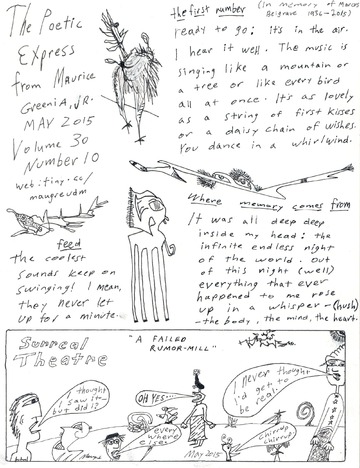 The Poetic
Express
from Maurice
Greenia, Jr.
MAY 2015
Volume 30
Number 10
web: tiny.cc/
maugreudm
feed
the coolest
sounds keep on
swinging! I mean,
they never let
up for a minute.
the first number
(In memory of Marcus
Belgrave 1936-2015)
ready to go: Its in the air.
I hear it well. The music is
singing like a mountain or
a tree or like every bird
all at once. It's as lovely
as a string of first kisses
or a daisy chain of wishes.
You dance in a whirlwind.
Where memory comes from
It was all deep deep
inside my head: the
infinite endless night
of the world. Out
of this night (well)
everything that ever
happened to me rose
up in a whisper-(hush)
-the body, the mind, the heart.
Surreal
Theatre
"A FAILED
RUMOR-MILL"
I thought
I saw it-
but did I?
OH YES...
every
where
else
I never thought
I'd get to
be real
chirrup
chirrup!
May 2015